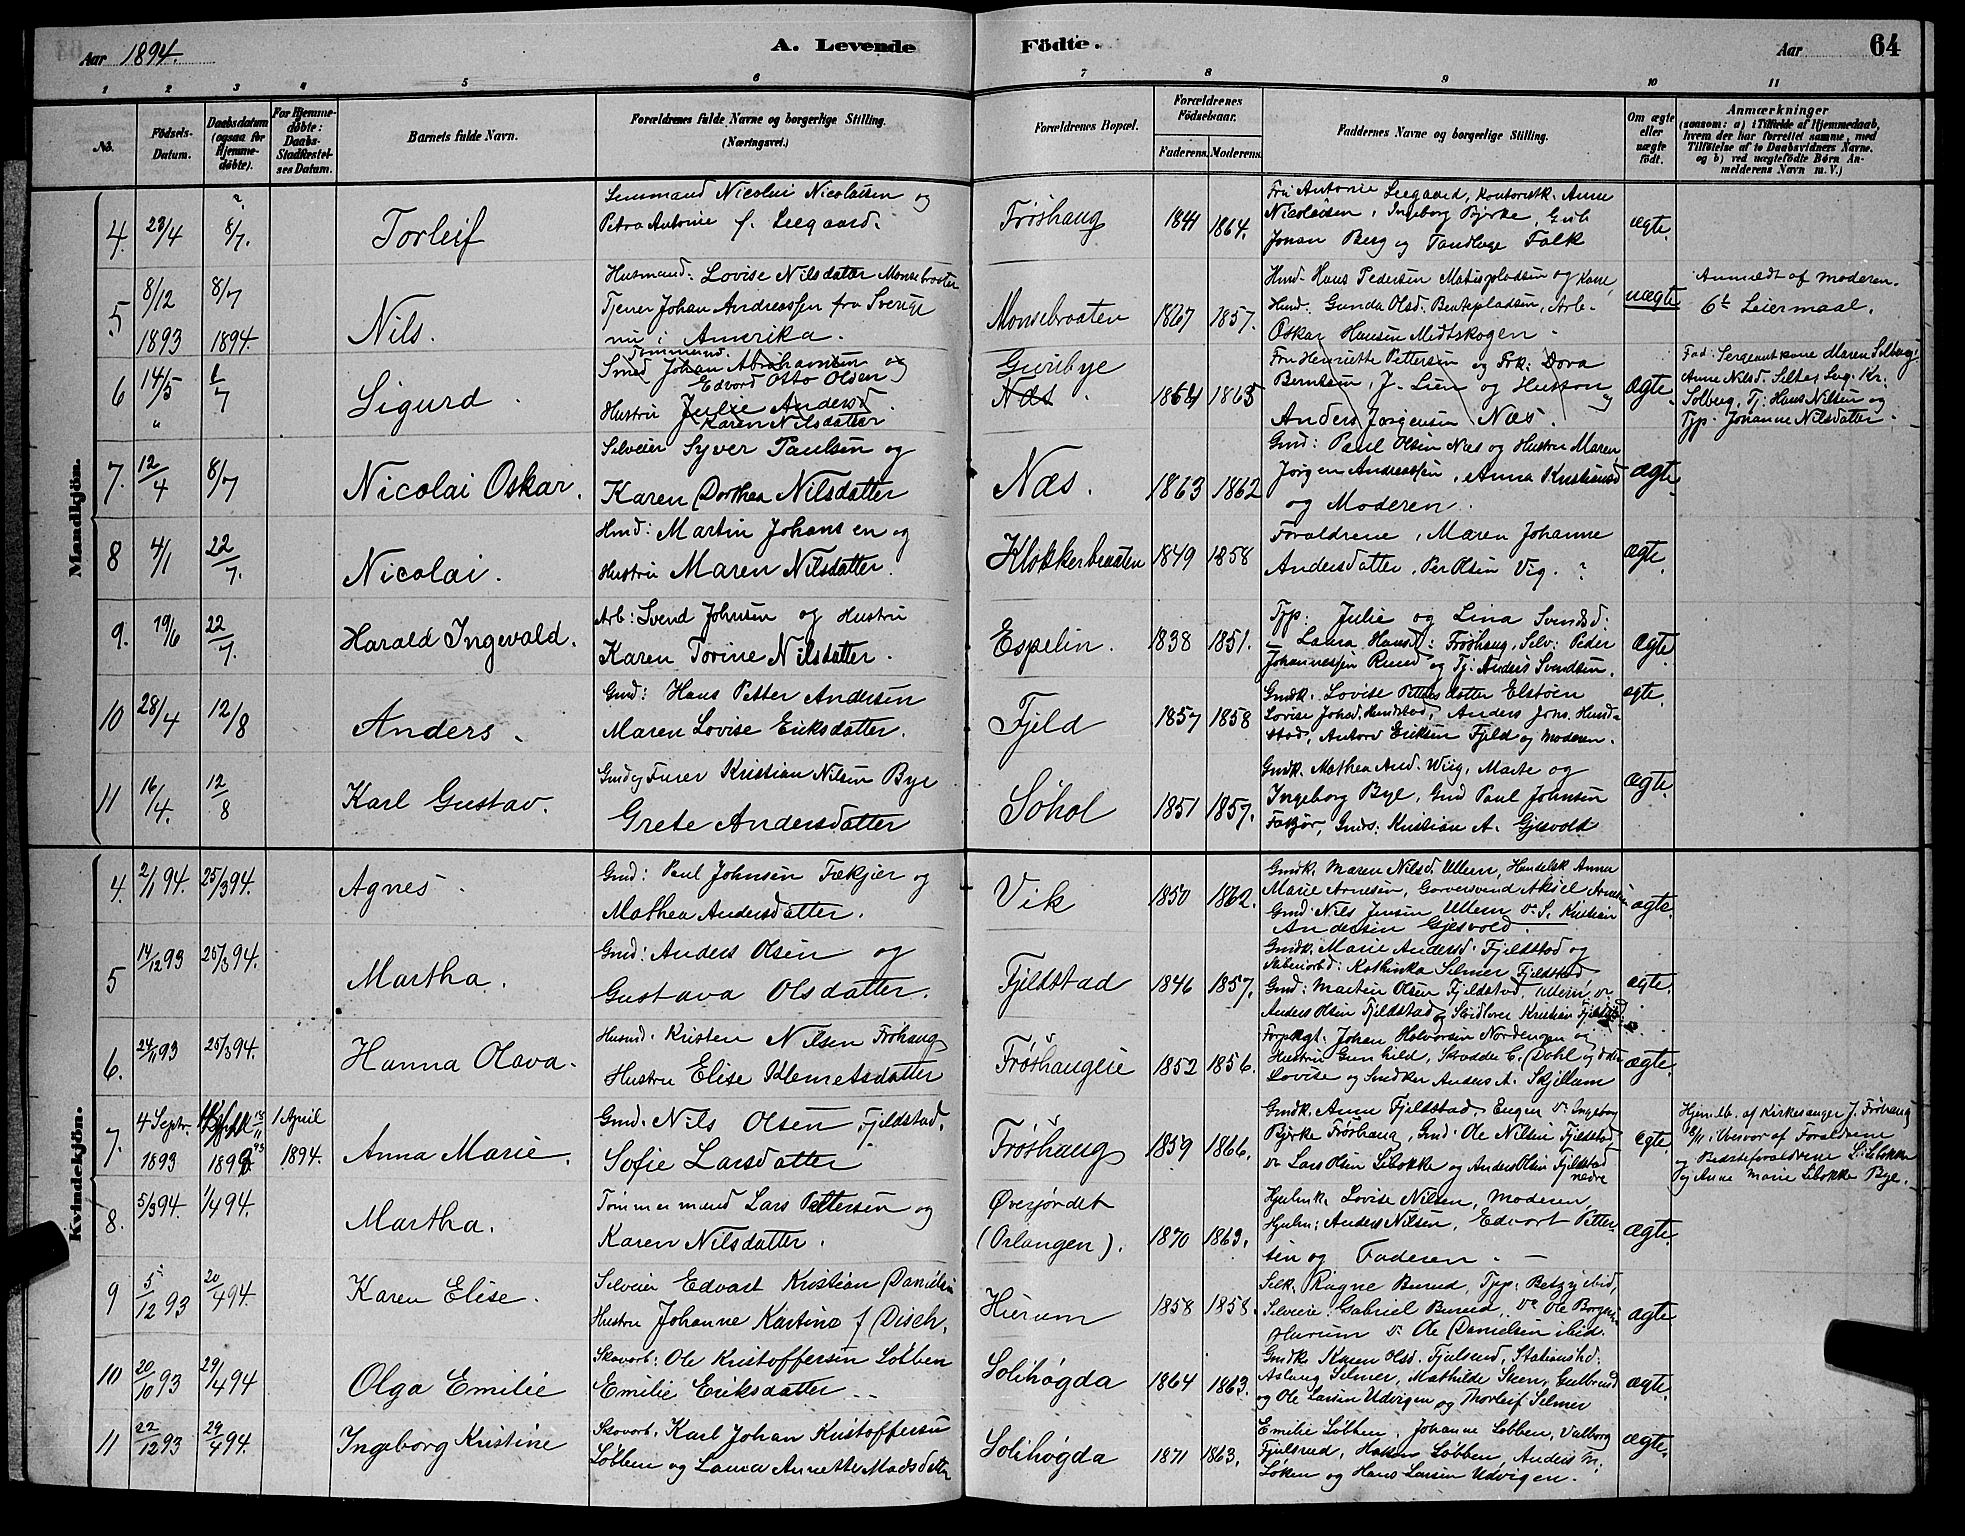 Aar 1894.
A. Levende Födte.
Aar
64
1 2 3 4 5 6 7 8 9 10 11
No.
Födsels-Datum.
Daabsdatum (ogsaa for Hjemme-døbte).
For Hjemme-døbte: Daabs-Stadfæstelses Datum.
Barnets fulde Navn.
Forældrenes fulde Navne og borgerlige Stilling. (Næringsvei.)
Forældrenes Bopæl.
Forældrenes Födselsaar.
Faderens. Moderens.
Faddernes Navne og borgerlige Stilling.
Om ægte eller uægte født.
Anmærkninger
(saasom: a) i Tilfælde af Hjemmedaab,
hvem der har forrettet samme, med
Tilføielse af to Daabsvidners Navne,
og b) ved uægtefödte Börn An-
melderens Navn m. V.)
Mandkjön.
4. 23/4 8/7. Torleif
Nicolai Nicolaisen og
Petra Antonie f. Leegaard.
Frøshaug 1864.
Fru Antonie Leegaard, Anne
Nicolaisen, Ingeborg Bjerke,
Johan Berg og Falk
ægte.
5 8/12 1893 8/7 1894. Nils.
Husmand: Lovise Nilsdatter Monsebraaten
Tjener Johan Andreassen fra Sverige
nu i Amerika.
Monsebraaten 1867 1857.
Hmd. Hans Pedersen og Kone,
Hmd. Gunda Olsd. Arb-
Oskar Hansen Medtskogen
uægte
Anmeldt af moderen.
6te Leiermaal.
6 14/5 Sigurd.
Tømmermd.
Smed Johan Abrahamsen og
Edvard Otto Olsen
Hustru Julie Andersd
Karen Nilsdatter
Guribye
Næs. 1864 1865
Fru Henriette Pettersen og Frk: Dora
Berntsen, J. Lien og
Anders Jørgensen Næs.
ægte
Fad: Sergeant kone Maren Solberg,
Anne Nilsd.
Solberg, Tj: Hans Nilsen og
Typ: Johanne Nilsdatter.
7. 12/4 8/7 Nicolai Oskar.
Selveier Syver Paulsen og
Karen Dorthea Nilsdatter
Næs. 1863 1862
Gmd: Paul Olsen Næs og Hustru Maren,
Jørgen Andreassen, Anna Kristiansd
og Moderen.
ægte.
8 4/1 22/7. Nicolai.
Hmd: Martin Johansen og
Hustru Maren Nilsdatter.
Klokkerbraaten 1849 1858
Forældrene, Maren Johanne
Andersdatter, Per Olsen Vig.
ægte.
9. 19/6 22/7. Harald Ingevald.
Arb: Svend Johnsen og Hustru
Karen Torine Nilsdatter.
Espelin. 1838 1851.
Typ: Julie og Lina Svendsd:
Laura Hansd: Frøshaug, Selv: Peder
Johannessen Rund og Tj: Anders Svendsen.
ægte.
10 28/4 12/8 Anders.
Gmd: Hans Petter Andersen
Maren Lovise Eriksdatter.
Fjeld 1857 1858
Gmdk. Lovise Pettersdatter Elstøen
Lovise Johsd. Hundstad, Anders Johs. Hund-
stad, Anton Eriksen Fjeld og Moderen.
ægte.
11 16/4. 12/8 Karl Gustav.
Gmd og Furer Kristian Nilsen Bye
Grete Andersdatter
Søhol 1851 1857.
Gmdk. Mathea And. Wiig, Marte og
Ingeborg Bye, Gmd Paul Johnsen
Fækjør, Gmds: Kristian A. Gjesvold
ægte.
Kvindekjön.
4. 2/1 94. 25/3 94. Agnes.
Gmd: Paul Johnsen Fækjer og
Mathea Andersdatter.
Vik 1850 1862.
Gmdk. Maren Nilsd. Ullern, Handelsk Anna
Marie Arnesen, Garversvend Aksel Arnesen
Gmd. Nils Jensen Ullern v. S. Kristian
Andersen Gjesvold.
ægte.
5 14/12 93 25/3 94. Martha.
Gmd: Anders Olsen og
Gustava Olsdatter.
Fjeldstad 1846 1857.
Gmdk. Marie Andersd. Fjeldstad og
Kathinka Selmer Fjeldstad
Gmd: Martin Olsen Fjeldstad, Ullern,
Anders Olsen Fjeldstad og Kristian Fjeldstad.
ægte.
6. 24/11 93 25/3 94. Hanna Olava.
Husmd. Kristen Nilsen Frøhaug
Hustru Elise Klemetsdatter
Frøshaugeie 1852 1856.
Forpagt. Johan Halvorsen Nordengen og
Hustru Gunhild, C. Dahl og datter
Lovise og Smdker Anders A. Skjellum
ægte.
7. 4 Septr. 1893 1 April 1894. Anna Marie.
Gmd. Nils Olsen Fjeldstad.
Sofie Larsdatter
Frøshaug 1859 1866.
Gmdk. Anne Fjeldstad, Eugen v. Ingeborg
Bjerke Frøshaug, Gmd: Ole Nilsen Fjeldstad
v. Lars Olsen Libokke og Anders Olsen Fjeldstad
nedre
ægte.
Hjemdb. af Kirkesanger J. Frøhaug
i Nærvær af Forældrene
og Bedsteforældrene L. Libokke
og Anne Marie Libokke Bye.
8. 5/3 94. 1/4 94. Martha.
Tømmermand Lars Pettersen og
Karen Nilsdatter.
Øverjordet
(Orlangen). 1870 1863.
Hjulmk. Lovise Nilsen, Moderen,
Hjulm: Anders Nilsen, Edvart Petter-
sen og Faderen.
ægte.
9 5/12 93 20/4 94. Karen Elise.
Selveier Edvart Kristian Danielsen
Hustru Johanne Kastine f Disch.
Hurum 1858 1858.
Selk. Ragne Burud, Typ: Betzy ibid,
Selveier. Gabriel Burud, v. Ole Borgen
Hurum v. Ole Danielsen ibid.
ægte
10 20/10 93 29/4 94 Olga Emilie
Skovarb: Ole Kristoffersen Løbben
Emilie Eriksdatter
Solihøgda 1864 1863.
Gmdk. Karen Olsd. Fjulsrud,
Aslaug Selmer, Mathilde Skeen, Gulbrand
og Ole Larsen Udvigen og Thorleif Selmer
ægte.
11 22/12 93 29/4 94. Ingeborg Kristine
Skovarb. Karl Johan Kristoffersen
Løbben og Laura Annette Madsdatter
Solihøgda 1871 1863.
Emilie Løbben, Johanne Løbben, Valborg
Fjulsrud, Løbben, Anders M.
Løken og Hans Larsen Udvigen.
ægte.